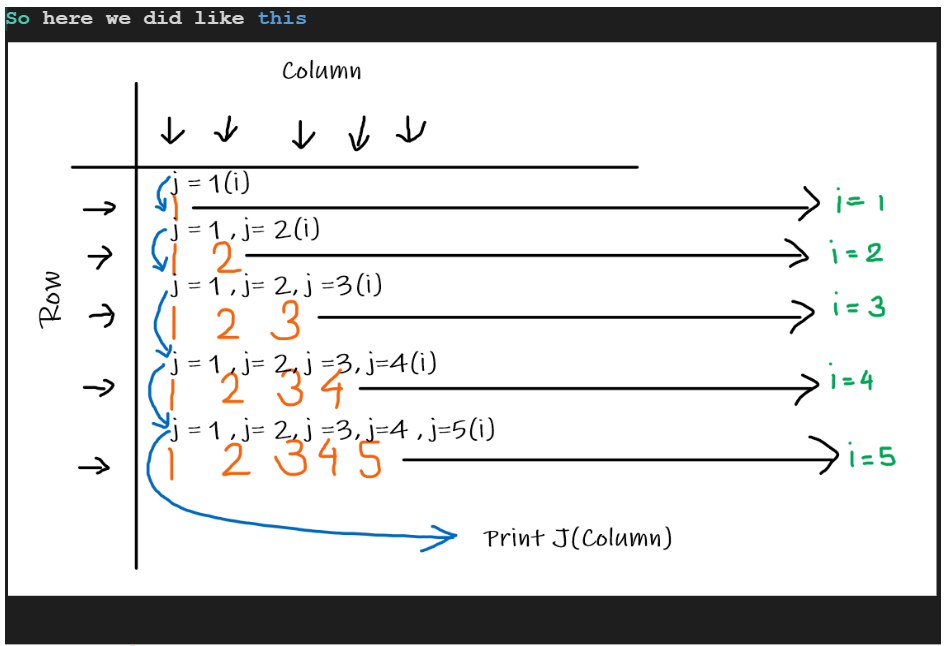 So here we did like this
Column
j = 1(i)
1
i= 1
j = 1 ,j= 2(i)
1 2
i = 2
Row
j = 1 ,j= 2,j =3(i)
1 2 3
i = 3
j = 1 ,j= 2,j =3,j=4(i)
1 2 3 4
i=4
j = 1 ,j= 2,j =3,j=4 ,j=5(i)
1 2 3 4 5
i=5
Print J(Column)